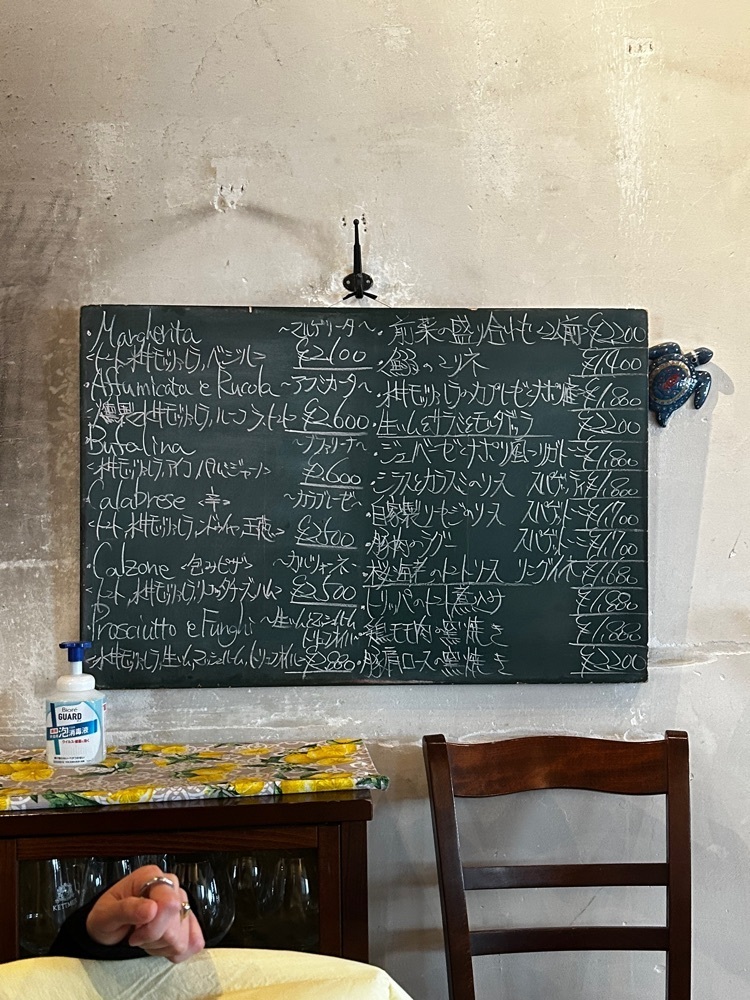 ・Margherita ~マルゲリータ~
<トマト、水牛モッツァレラ、バジル> ¥2100
・Affumicata e Rucola ~アフミカータ~
<燻製水牛モッツァレラ、ルーコラ、トマト> ¥2600
・Bufalina ~ブファリーナ~
<水牛モッツァレラ、パルミジャーノ> ¥2600
Calabrese <辛> ~カラブレーゼ~
<トマト、水牛モッツァレラ、ンドゥイヤ、玉ねぎ>
・Calzone <包みピザ> ~カルツォーネ~
<トマト、水牛モッツァレラ、リコッタチーズ、ハム> ¥2500
Prosciutto e Funghi ~生ハム、マッシュルーム、トリュフオイル~
<水牛モッツァレラ、生ハム、マッシュルーム、トリュフオイル>
・前菜の盛り合わせ 2人前 ¥2200
のマリネ ¥1400
・水牛モッツァレラのカプレーゼ ナポリ風 ¥1800
・生ハムとサラミとモルタデッラ ¥2200
・ジェノベーゼ ナポリ風 リガトーニ ¥1800
・シラスとカラスミのソース スパゲッティ ¥1800
・自家製ツナのソース スパゲッティ ¥1700
・豚肉のラグー スパゲッティ ¥1700
・桜海老のトマトソース リングイネ ¥1680
・トリッパのトマト煮込み ¥1880
・鶏モモ肉の窯焼き ¥1880
・豚肩ロースの窯焼き ¥2200
Biore
GUARD
泡消毒液